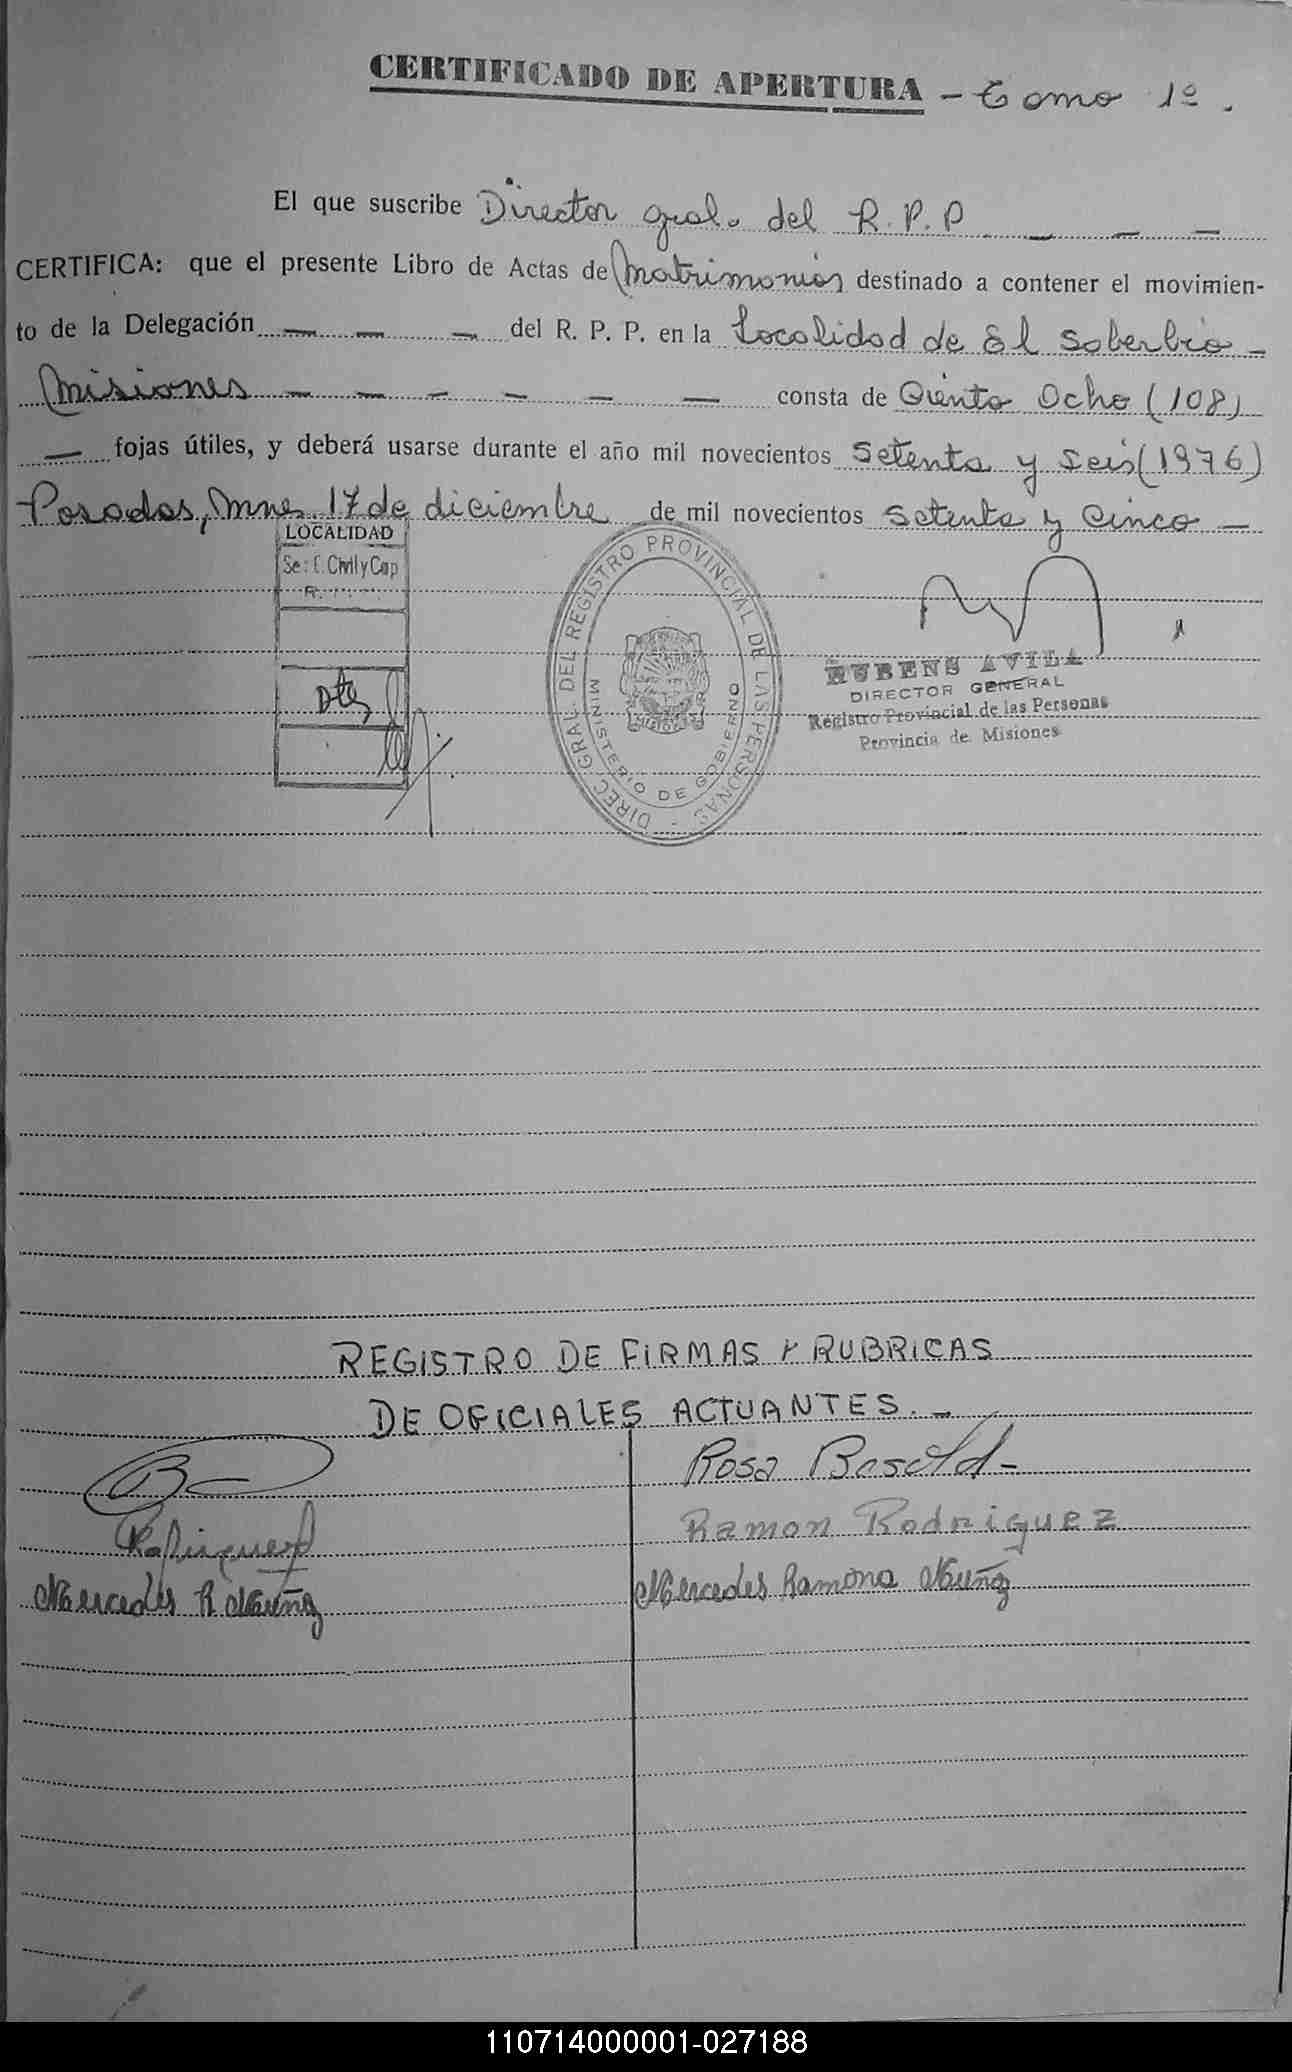 CERTIFICADO DE APERTURA - Tomo 1º.
El que suscribe Director Gral. del R.P.P. — — —
CERTIFICA: que el presente Libro de Actas de Matrimonios destinado a contener el movimien-
to de la Delegación — — — del R. P. P. en la Localidad de El Soberbio -
Misiones — — — — — — consta de Ciento Ocho (108)
— fojas útiles, y deberá usarse durante el año mil novecientos Setenta y Seis (1976)
Posadas, Mnes 17 de diciembre de mil novecientos Setenta y Cinco —
LOCALIDAD
C. Civil y Cap
DIREC. GRAL. DEL REGISTRO PROVINCIAL DE LAS PERSONAS -
MINISTERIO DE GOBIERNO
RUBENS AVILA
DIRECTOR GENERAL
Registro Provincial de las Personas
Provincia de Misiones
REGISTRO DE FIRMAS Y RUBRICAS
DE OFICIALES ACTUANTES. -
Rosa Basold-
Ramon Rodriguez
Mercedes R Nuñez Mercedes Ramona Nuñez
110714000001-027188